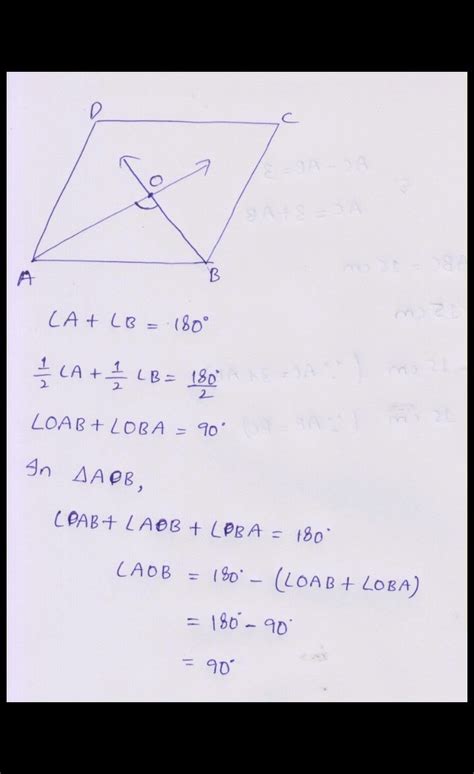 D C
O
A B
∠A + ∠B = 180°
1/2 ∠A + 1/2 ∠B = 180°/2
∠OAB + ∠OBA = 90°
In ΔAOB,
∠OAB + ∠AOB + ∠OBA = 180°
∠AOB = 180° - (∠OAB + ∠OBA)
= 180° - 90°
= 90°